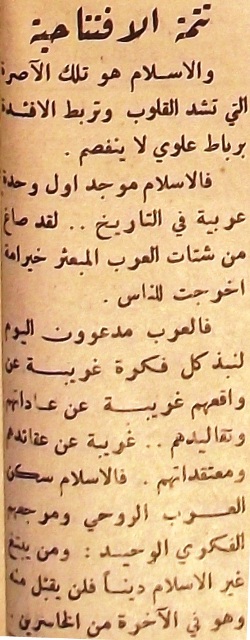 تتمة الافتتاحية
والاسلام هو تلك الآصرة
التي تشد القلوب وتربط الافئدة
برباط علوي لا ينفصم .
فالاسلام موجد اول وحدة
عربية في التاريخ .. لقد صاغ
من شتات العرب المبعثر خير امة
اخرجت للناس .
فالعرب مدعوون اليوم
لنبذ كل فكرة غريبة عن
واقعهم غريبة عن عاداتهم
وتقاليدهم .. غريبة عن عقائدهم
ومعتقداتهم . فالاسلام سكن
العرب الروحي ومرجعهم
الفكوي الوحيد : ومن يبتغ
غير الاسلام ديناً فلن يقبل منه
وهو في الآخرة من الخاسرين .